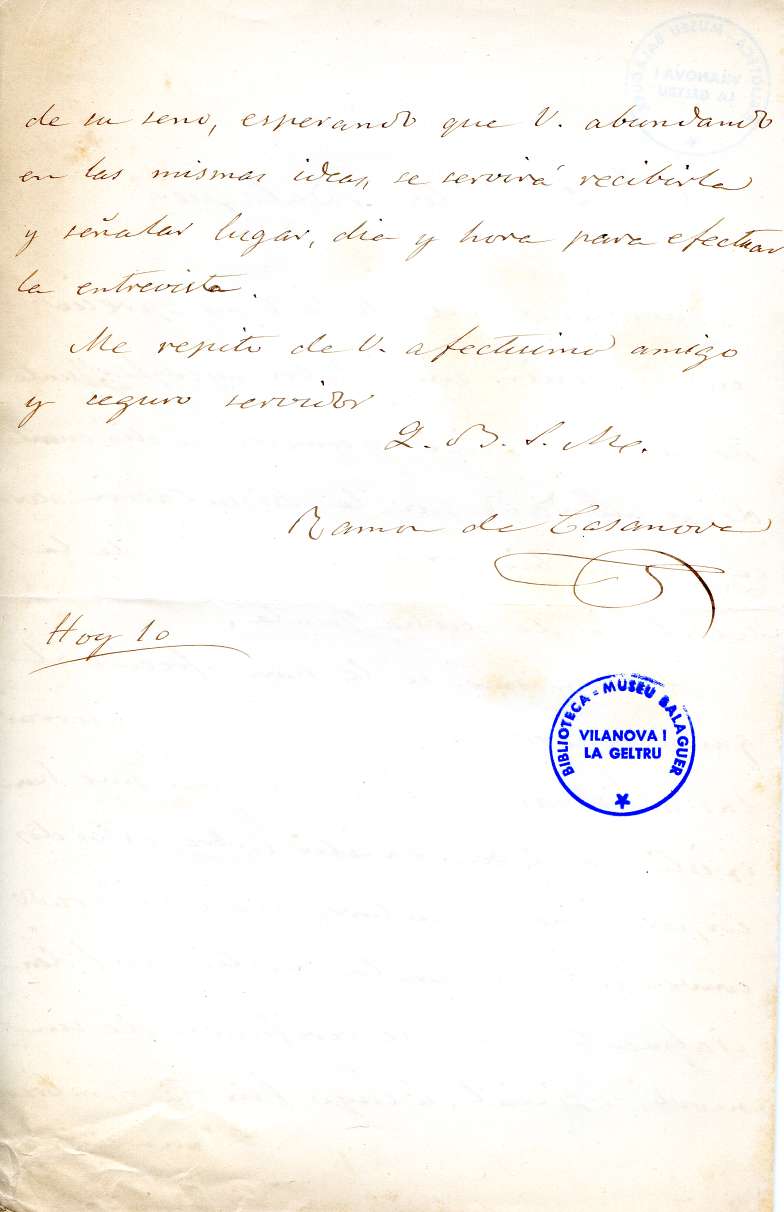 de su seno, esperando que V. abundando
en las mismas ideas, se servirá recibirla
y señalar lugar, dia y hora para efectuar
la entrevista.
Me repito de V. afectisimo amigo
y seguro servidor
Q. B. S. M.
Ramon de Casanova
Hoy 10
BIBLIOTECA = MUSEU BALAGUER
VILANOVA I
LA GELTRU